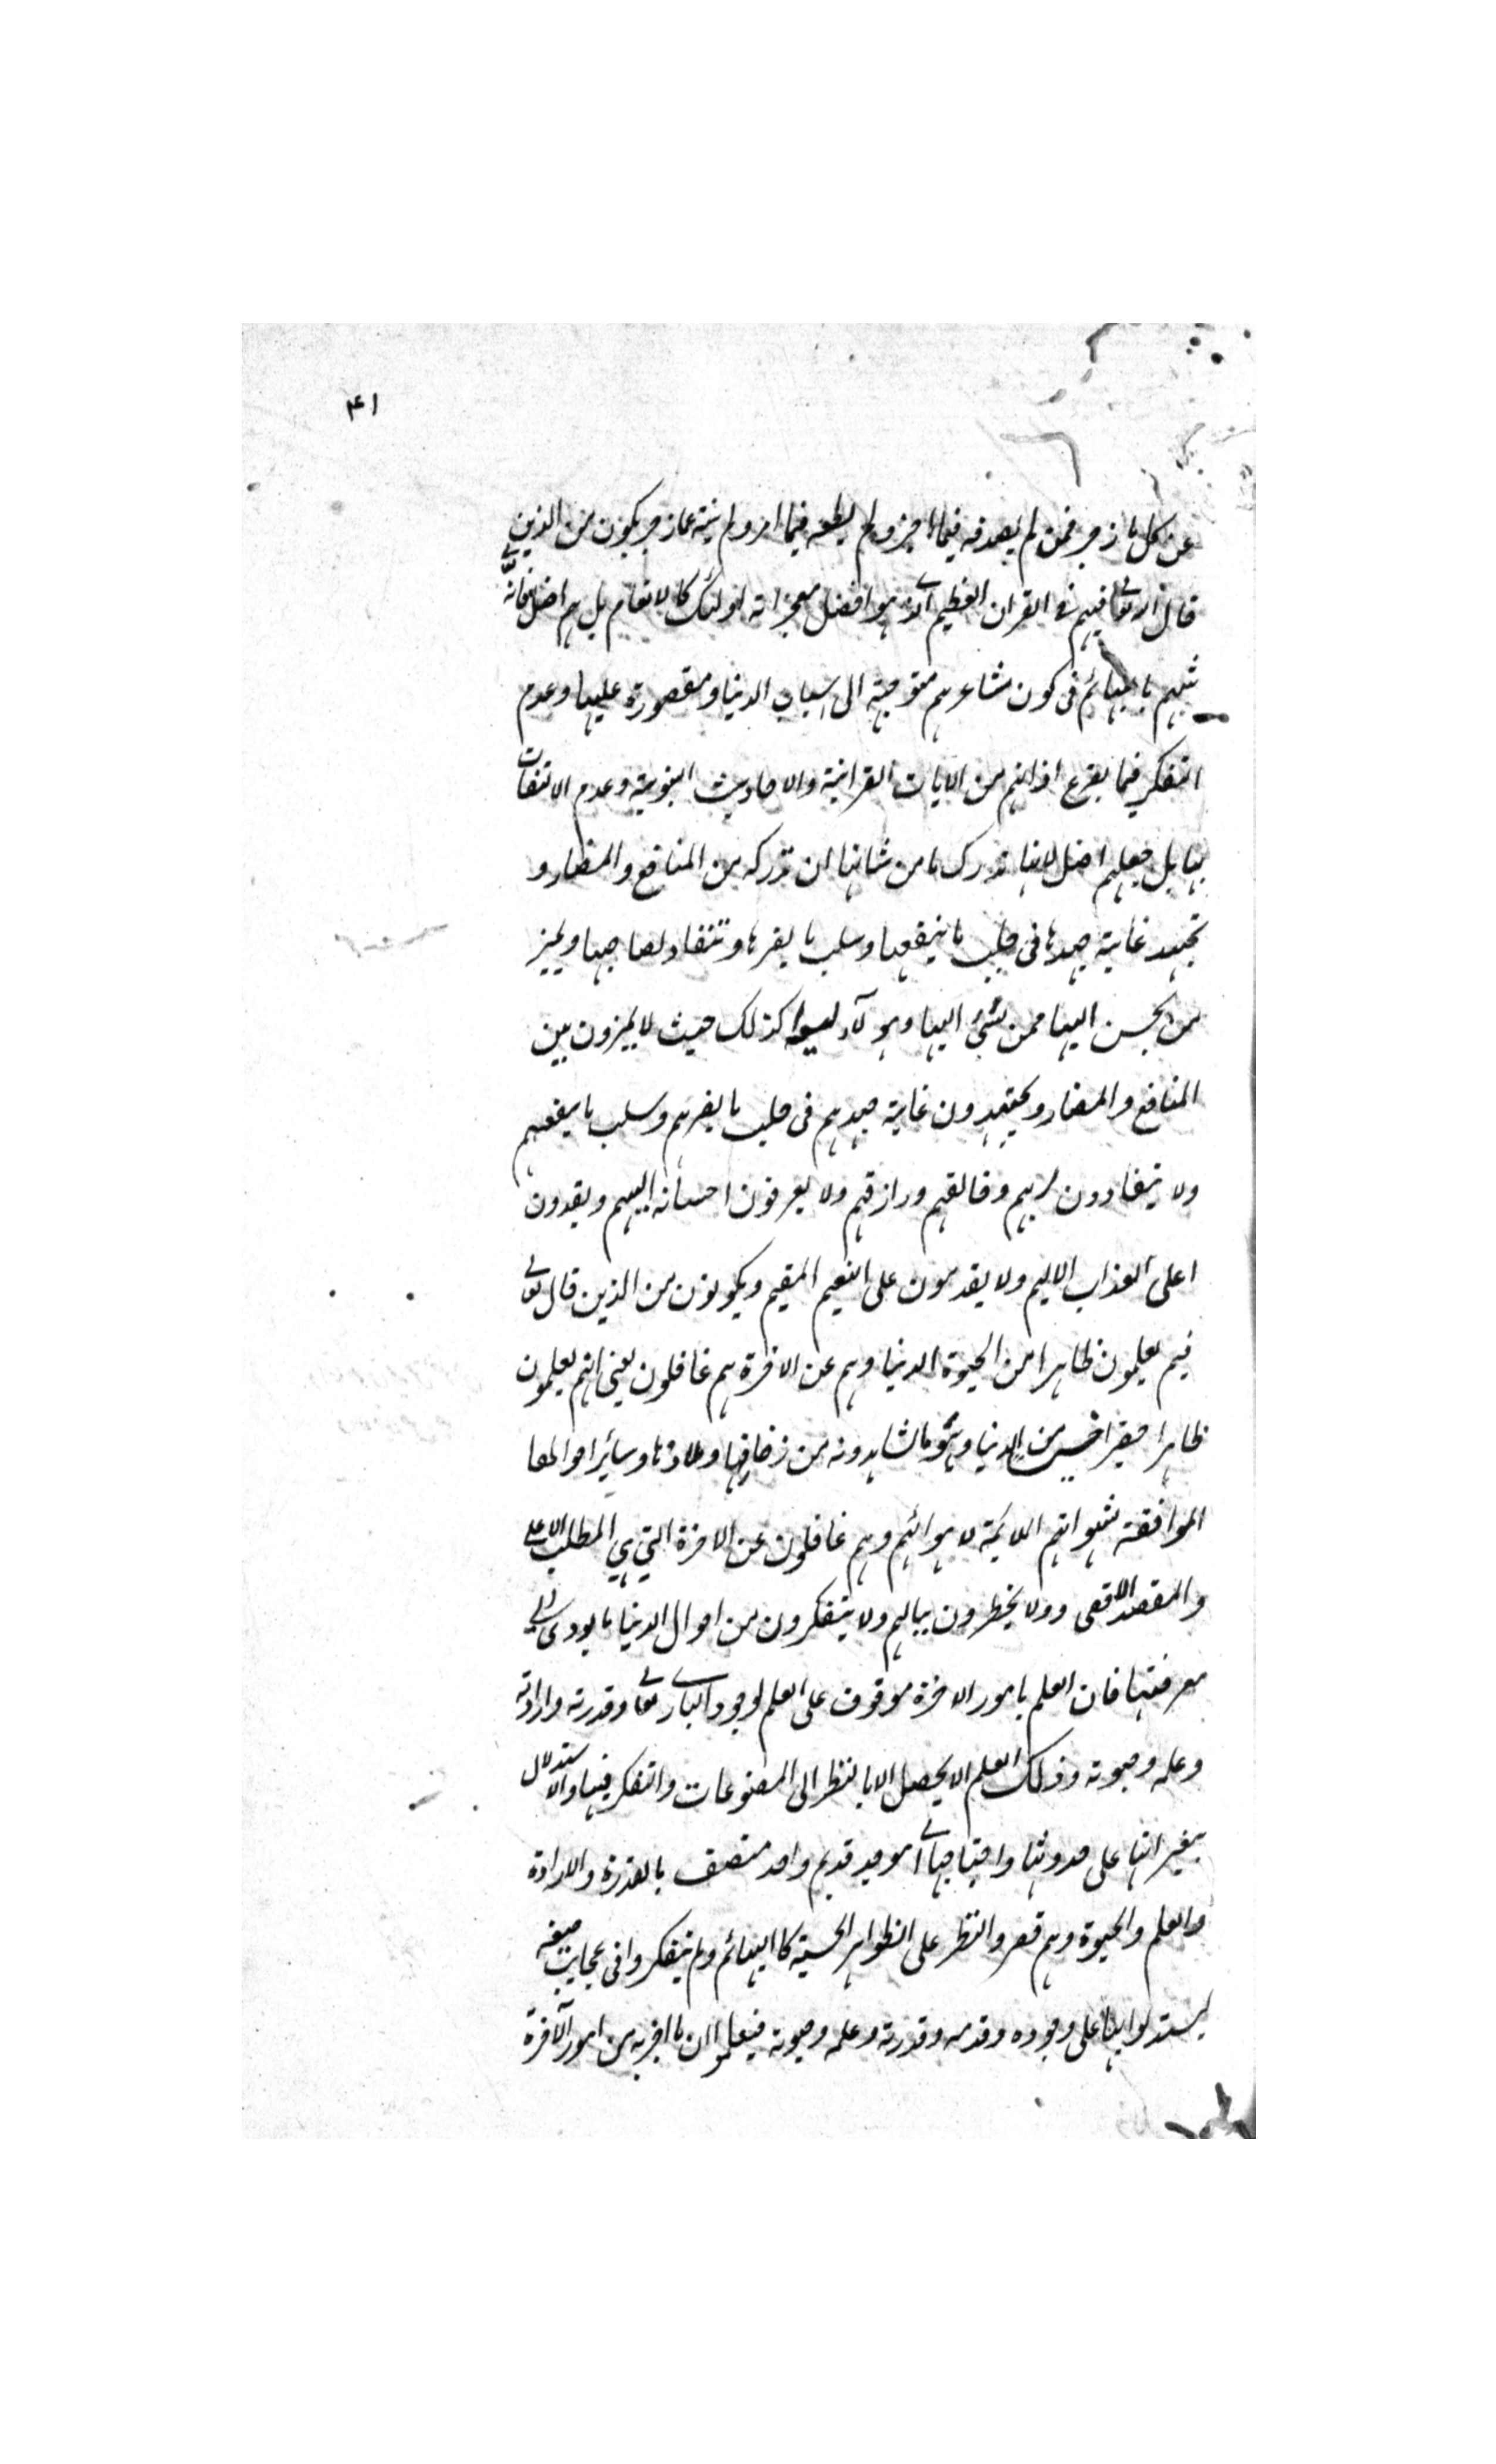 ۴۱
عن كل ما زجر فمن لم يصدقه فيما اخبر ولم يطعه فيما امر ولم ينته عما زجر يكون من الذين
قال الله تعالى فيهم في القران العظيم الذي هو افضل معجزاته اولئك كالانعام بل هم اضل فانه تعالى
شبههم بالبهائم في كون مشاعرهم متوجهة الى اسباب الدنيا ومقصورة عليها وعدم
التفكر فيما يقرع اذانهم من الايات القرانية والاحاديث النبوية وعدم الالتفات
بها بل جعلهم اضل لانها تدرك ما من شانها ان تدركه من المنافع والمضار و
تجتهد غاية جهدها في جلب ما ينفعها وسلب ما يضرها وتنقاد لصاحبها ويميز
من يحسن اليها ممن يسئ اليها وهؤلاء ليسوا كذلك حيث لا يميزون بين
المنافع والمضار ويجتهدون غاية جهدهم في جلب ما يضرهم وسلب ما ينفعهم
ولا ينقادون لربهم وخالقهم ورازقهم ولا يعرفون احسانه اليهم ويقدون
اعلى العذاب الاليم ولا يقدمون على النعيم المقيم ويكونون من الذين قال تعالى
فيهم يعلمون ظاهرا من الحيوة الدنيا وهم عن الاخرة هم غافلون يعني انهم يعلمون
ظاهرا حقيرا خسيسا من الدنيا وهو ما شاهدونه من زخارفها وملاذها وسائر احوالها
الموافقة لشهواتهم الملايمة لاهوائهم وهم غافلون عن الاخرة التي هي المطلب الاعلى
والمقصد الاقصى وولا يخطرون ببالهم ولا يتفكرون من احوال الدنيا ما يودي الى
معرفتها فان العلم بامور الاخرة موقوف على العلم لوجود الباري تعالى وقدرته وارادته
وعلمه وحيوته وذلك العلم لا يحصل الا بالنظر الى المصنوعات والتفكر فيها والاستدلال
بتغيراتها على حدوثها واحتياجها الى موجد قديم واحد متصف بالقدرة والارادة
والعلم والحيوة وهم قصروا النظر على الظواهر الحسية كالبهائم ولم يتفكروا في عجايب صنعه
ليستدلوا بها على وجوده وقدمه وقدرته وعلمه وحيوته فيعلموا ان ما اخبر به من امور الاخرة